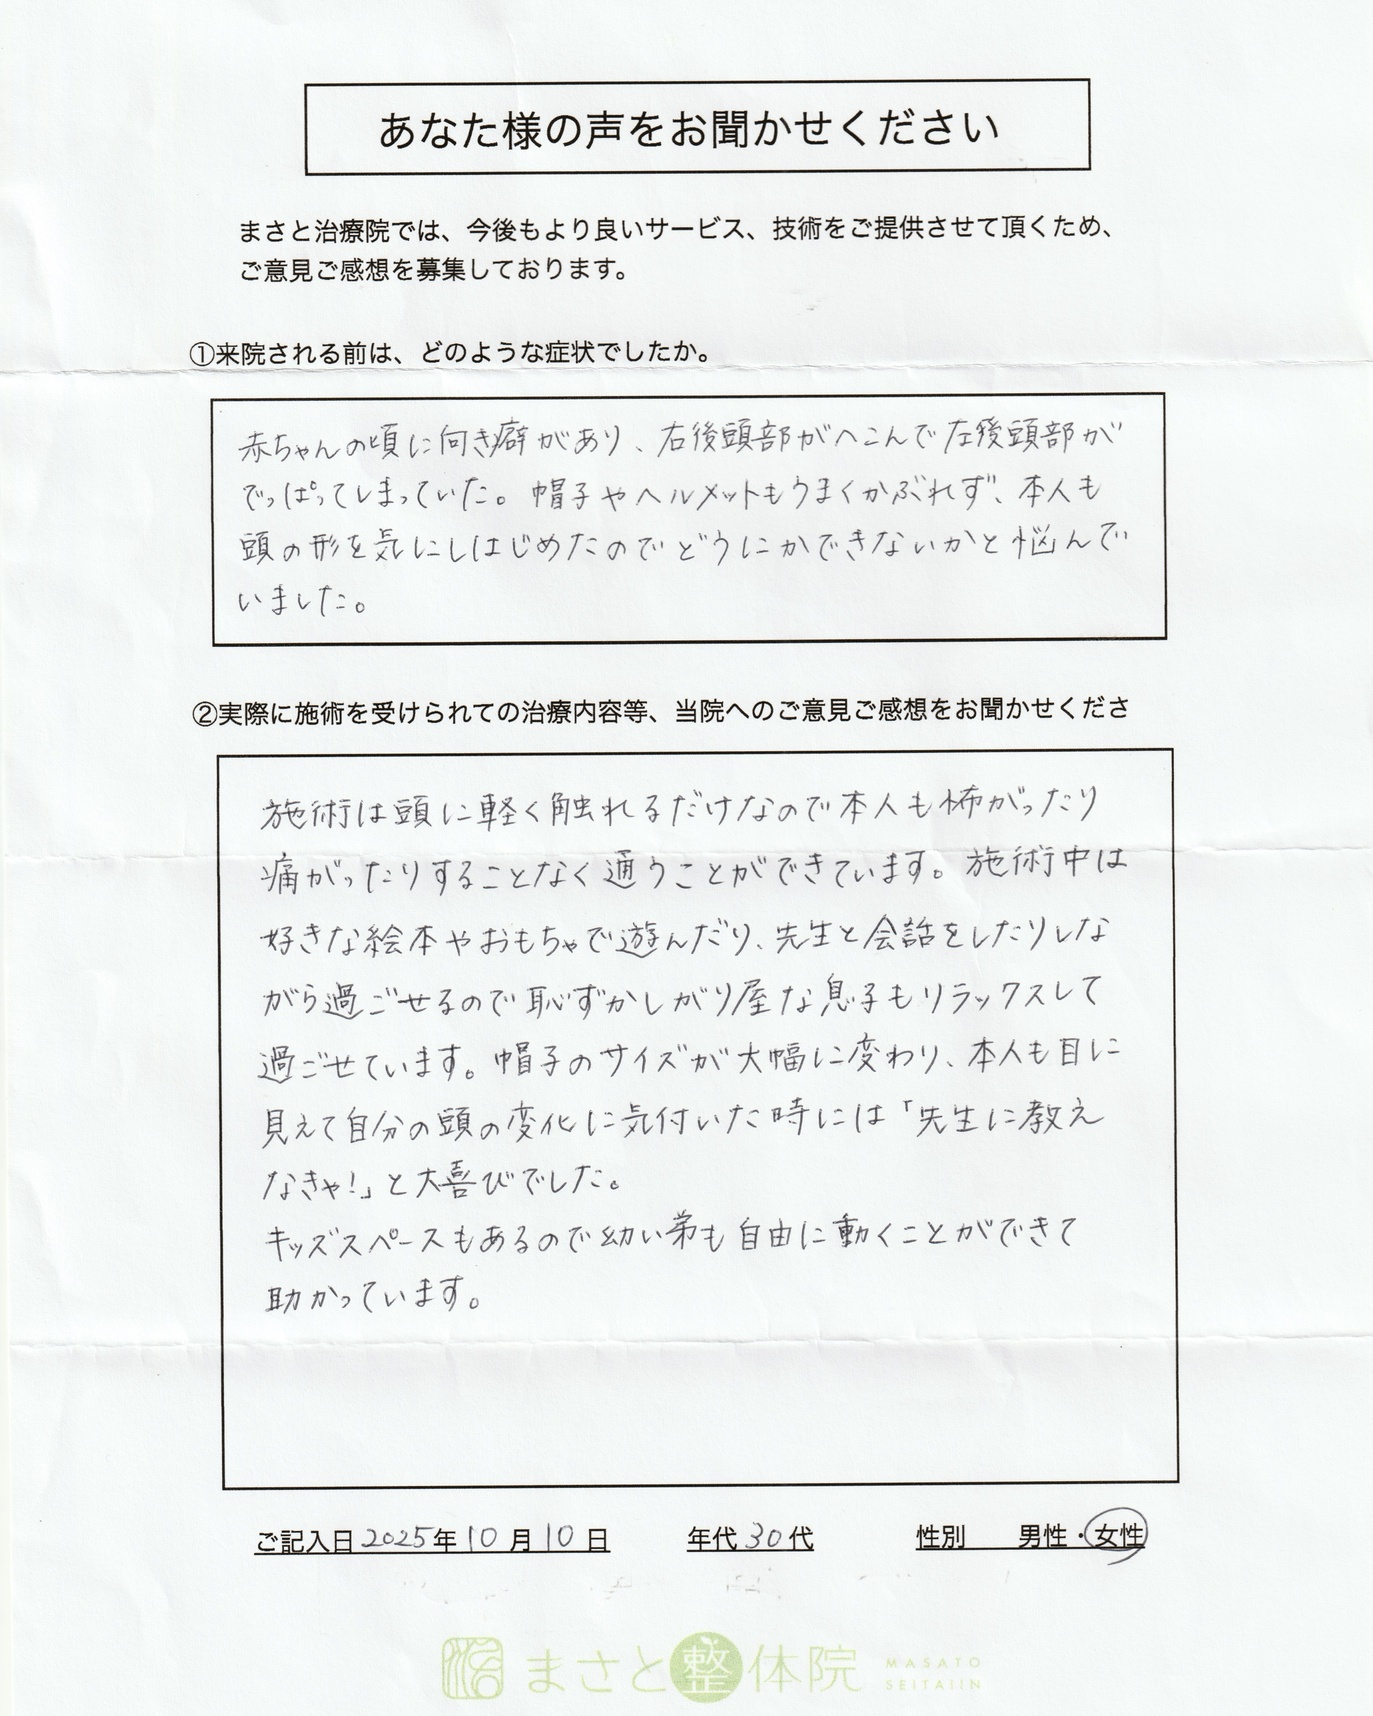 あなた様の声をお聞かせください
まさと治療院では、今後もより良いサービス、技術をご提供させて頂くため、
ご意見ご感想を募集しております。
①来院される前は、どのような症状でしたか。
赤ちゃんの頃に向き癖があり、右後頭部がへこんで左後頭部が
でっぱってしまっていた。帽子やヘルメットもうまくかぶれず、本人も
頭の形を気にしはじめたのでどうにかできないかと悩んで
いました。
②実際に施術を受けられての治療内容等、当院へのご意見ご感想をお聞かせくださ
施術は頭に軽く触れるだけなので本人も怖がったり
痛がったりすることなく通うことができています。施術中は
好きな絵本やおもちゃで遊んだり、先生と会話をしたりしな
がら過ごせるので恥ずかしがり屋な息子もリラックスして
過ごせています。帽子のサイズが大幅に変わり、本人も目に
見えて自分の頭の変化に気付いた時には「先生に教え
なきゃ!」と大喜びでした。
キッズスペースもあるので幼い弟も自由に動くことができて
助かっています。
ご記入日 2025年 10 月 10 日 年代 30 代 性別 男性・女性
治 まさと整体院 MASATO SEITAIIN